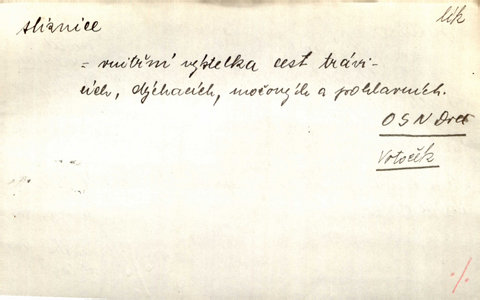 sliznice
lék
= vnitřní výstelka cest tráví-
cích, dýchacích, močových a pohlavních.
OSN Dod
Votoček
%